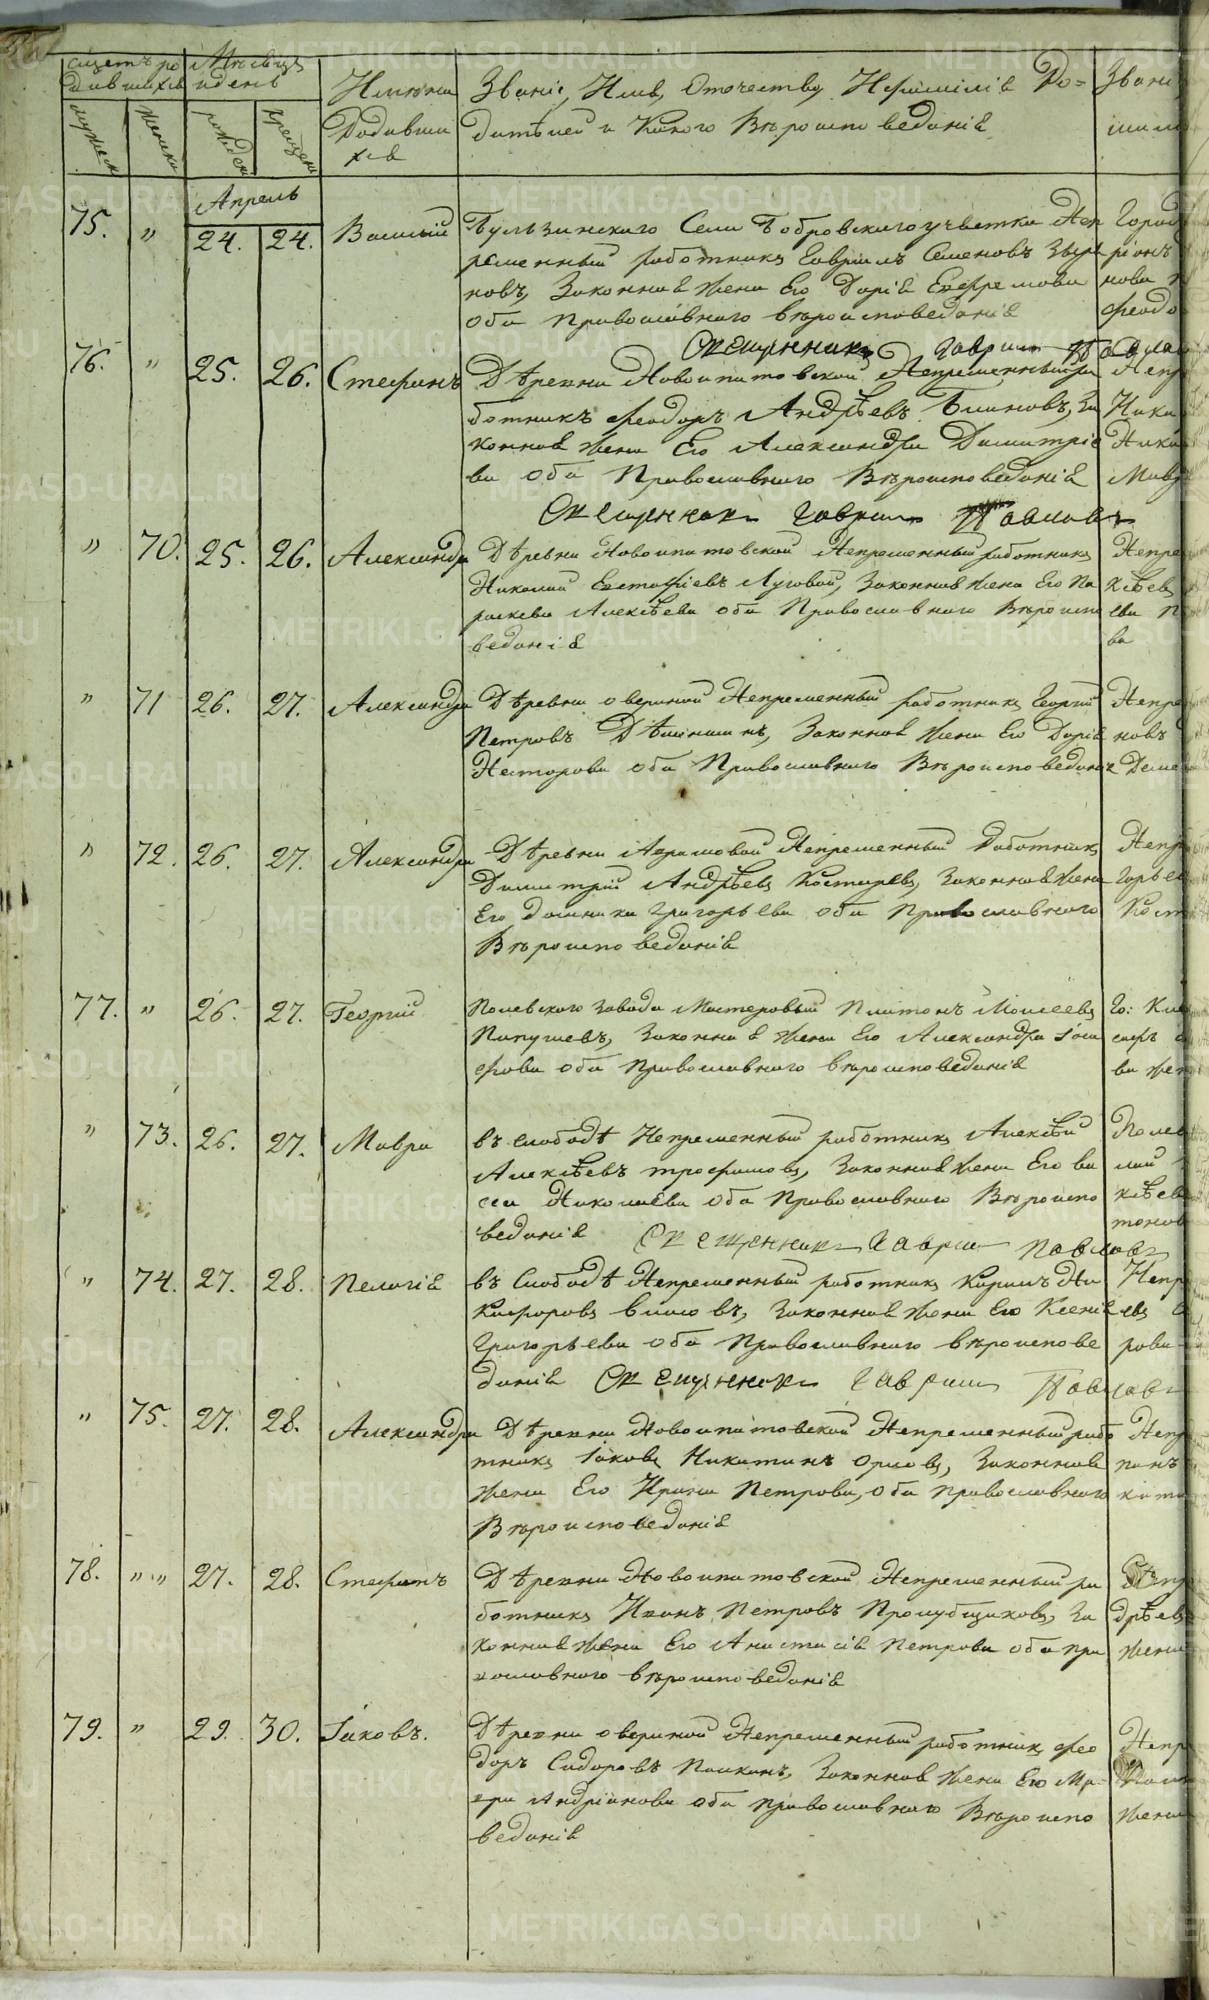 Счетъ ро
дившихся
Мѣсяцъ
и день
мужеска
женска
рожден
крещен
Имѣна
Родивши
хся
Званіе, Имя, Отечество, и Фамилія Ро=
дителей и Какого Вѣроисповеданія
Звані
Апрель
75. " 24. 24. Василій
Сели Бобровскаго
ременный работникъ Гавріилъ Семеновъ Звѣре
новъ, Законная жена Его Дарія Ефремова
оба православнаго вѣроисповеданія
Священникъ Гавриилъ Павлов
76. " 25. 26. Стефанъ Дѣревни Новоипатовской Непременный ра
ботникъ Феодоръ Андрѣевъ Блиновъ, За
конная жена Его Александра Димитріе
ва Оба Православнаго Вѣроисповеданія
Священникъ Гавриилъ Павловъ
" 70. 25. 26. Александра Дѣревни Новоипатовской Непременный работникъ
Николай Евстафіевъ Луговой, Законная жена Его Па
раскева Алексѣева оба Православнаго Вѣроиспо
веданія
" 71 26. 27. Александра Дѣревни Непременный работникъ Георгій
Петровъ Законная жена Его Дарія
Несторова оба Православнаго Вѣроисповеданія
" 72. 26. 27. Александра Дѣревни Абрамовой Непременный Работникъ
Димитрій Андрѣевъ Костаревъ, Законная жена
Его Домника Григорьева оба Православнаго
Вѣроисповеданія
77. " 26. 27. Георгій Полевскаго завода Мастеровый Платонъ Моисеевъ
Папушевъ, Законная жена Его Александра Іоси
фова оба православнаго вѣроисповеданія
" 73. 26. 27. Мавра въ слободѣ Непременный работникъ Алексѣй
Алексѣевъ трофимовъ, Законная жена Его Ва
сса Николаева оба православнаго Вѣроиспо
веданія Священникъ Гавриилъ Павловъ
" 74. 27. 28. Пелагія въ Слободѣ Непременный работникъ Кирилъ Ни
кифоровъ Законная жена Его Ксенія
Григорьева оба Православнаго вѣроисповe
данія Священникъ Гавриилъ Павловъ
" 75. 27. 28. Александра Дѣревни Новоипатовской Непременный рабо
тникъ Іаковъ Никитинъ Орловъ, Законная
жена Его Ирина Петрова, оба православнаго
Вѣроисповеданія
78. " " 27. 28. Стефанъ Дѣревни Новоипатовской Непременный ра
ботникъ Иванъ Петровъ Законная
жена Его Анастасія Петрова оба пра
вославнаго вѣроисповеданія
79. " 29. 30. Іаковъ. Дѣревни Непременный работникъ Фео
доръ Сидоровъ Пашкинъ, Законная жена Его
Андріанова оба православнаго Вѣроиспо
веданія